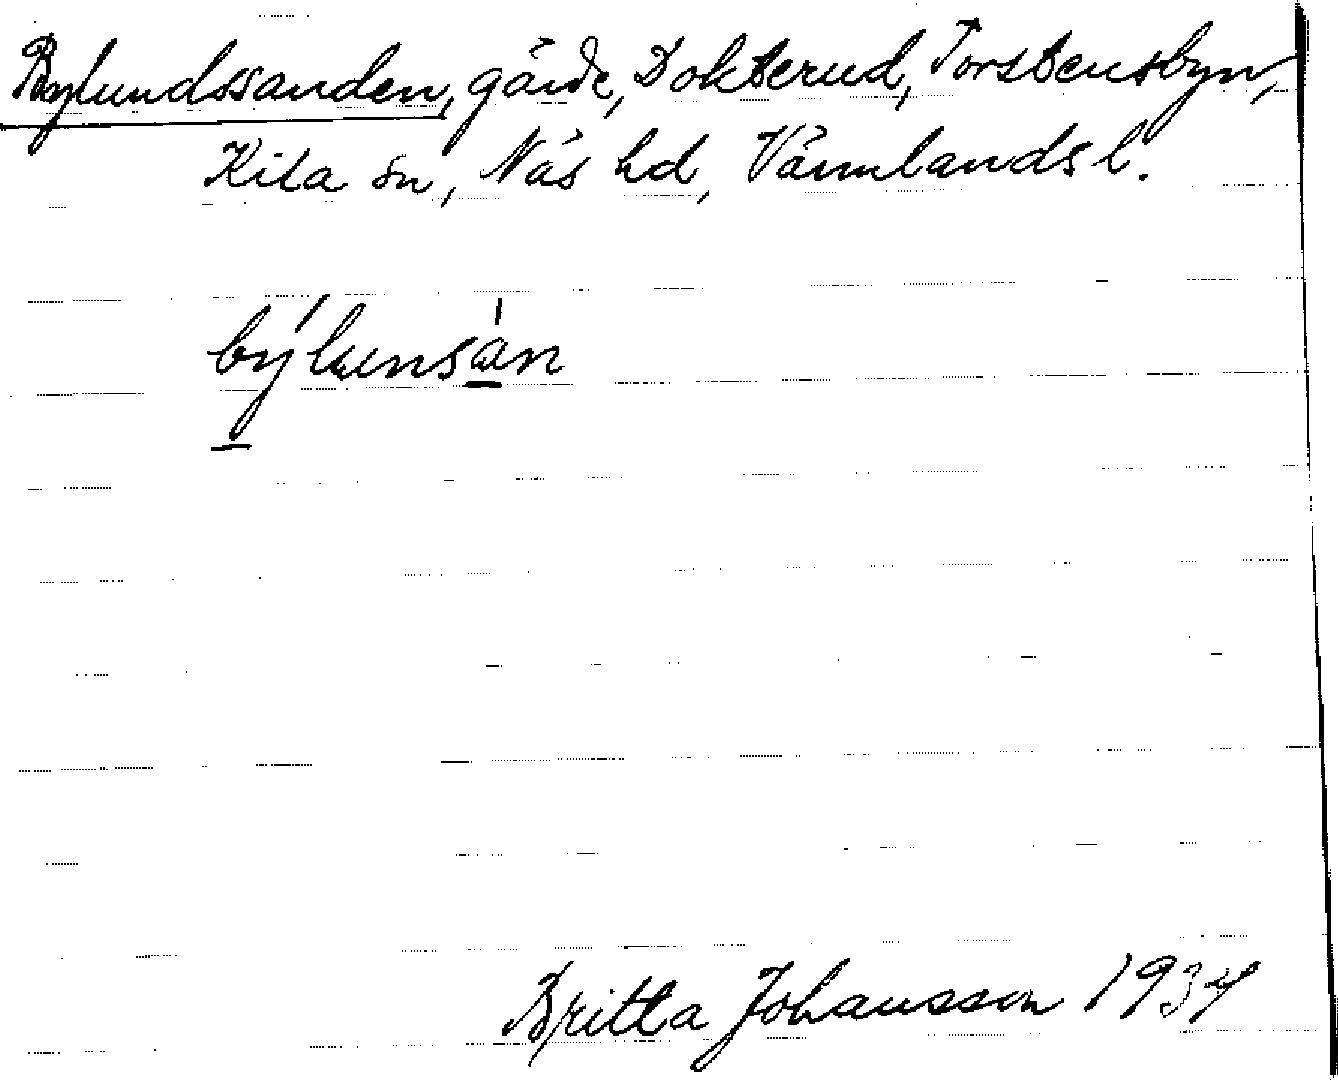 Bylundssanden, gärde, Dokterud, Torstensbyn,
Kila sn, Näs hd, Värmlands l.
býlunsán
Britta Johansson 1934